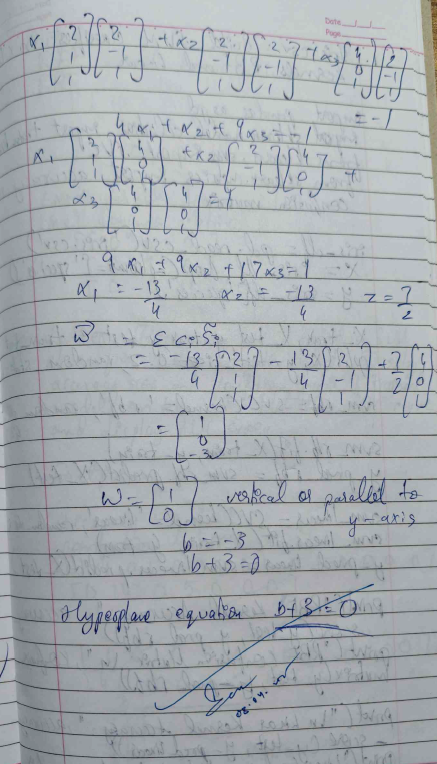 Date / /
Page
α₁ [2 1 1] [2 -1 1] + α₂ [2 -1 1] [2 -1 1] + α₃ [4 0 1] [2 -1 1]
= -1
4α₁ + α₂ + 9α₃ = -1
α₁ [2 1 1] [4 0 1] + α₂ [2 -1 1] [4 0 1] +
α₃ [4 0 1] [4 0 1] = 1
9α₁ + 9α₂ + 17α₃ = 1
α₁ = -13/4 α₂ = -13/4 z = 7/2
w⃗ = Σ
= -13/4 [2 1 1] - 13/4 [2 -1 1] + 7/2 [4 0 1]
= [1 0 -3]
W = [1 0] vertical or parallel to
y-axis
b = -3
b + 3 = 0
Hyperplane equation b + 3 = 0